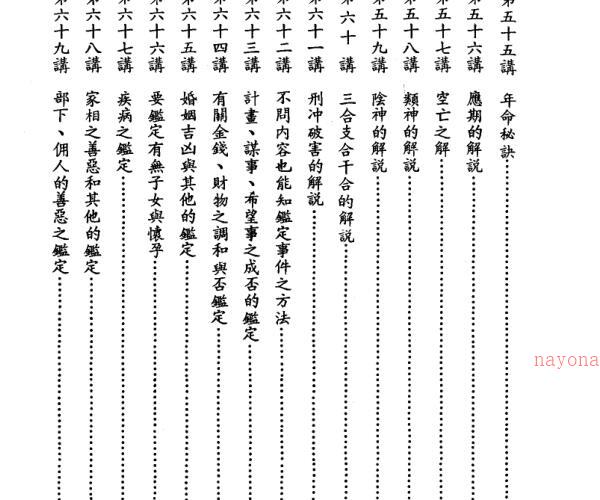 第五十五講 年命秘訣
第五十六講 應期的解說
第五十七講 空亡之解
第五十八講 類神的解說
第五十九講 陰神的解說
第六十講 三合支合干合的解說
第六十一講 刑冲破害的解說
第六十二講 不問內容也能知鑑定事件之方法
第六十三講 計畫、謀事、希望事之成否的鑑定
第六十四講 有關金錢、財物之調和與否鑑定
第六十五講 婚姻吉凶與其他的鑑定
第六十六講 要鑑定有無子女與懷孕
第六十七講 疾病之鑑定
第六十八講 家相之善惡和其他的鑑定
第六十九講 部下、佣人的善惡之鑑定
nayona